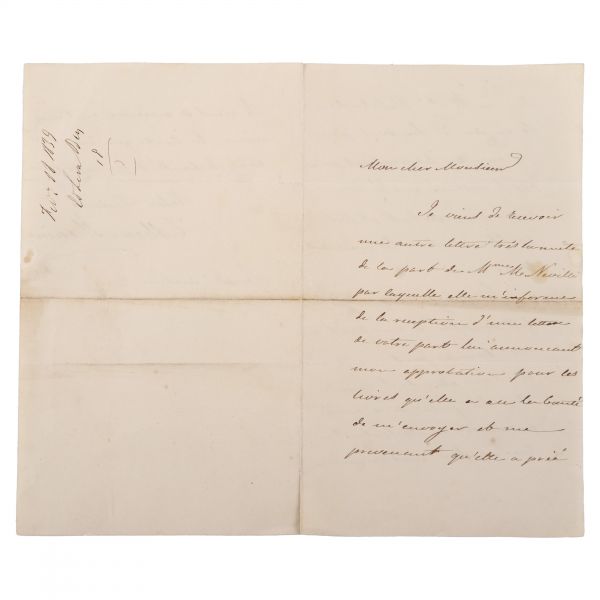 Feb. 18 1839
Mon cher Monsieur
Je viens de recevoir
une autre lettre très honnête
de la part de Mme Mc Neville
par laquelle elle m'informe
de la reception d'une lettre
de votre part lui annoncant
mon approbation pour les
livres qu'elle a eu la bonté
de m'envoyer et me
prevenant qu'elle a prié